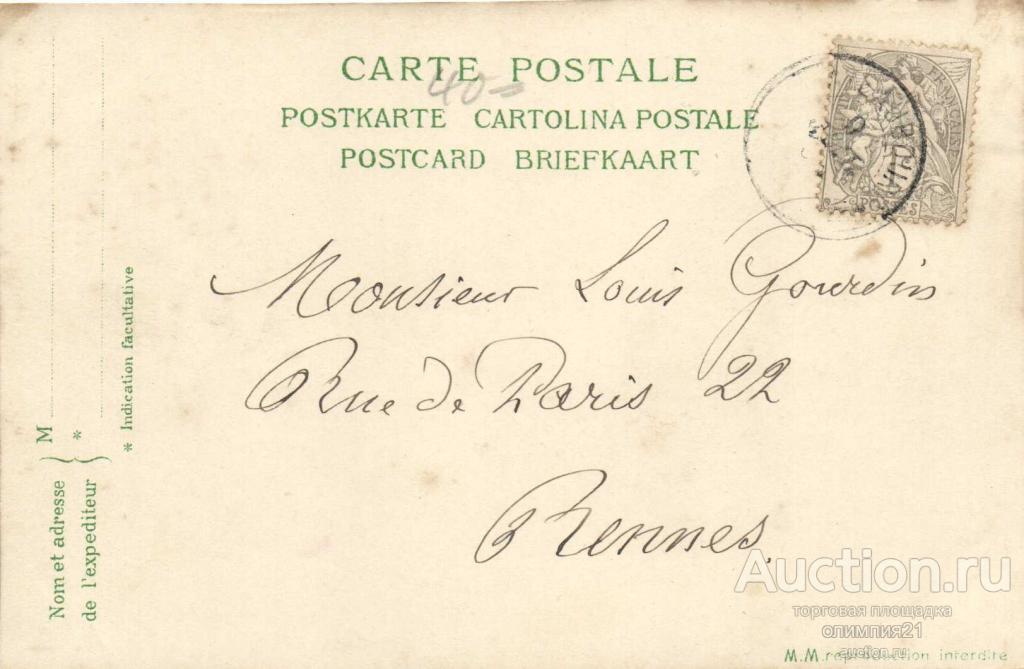 CARTE POSTALE
40
POSTKARTE CARTOLINA POSTALE
POSTCARD BRIEFKAART
Monsieur Louis Gourdin
Rue de Paris 22
Rennes
Nom et adresse
de l'expediteur
M
*
* Indication facultative
Auction.ru
торговая площадка
олимпия21
auction.ru
M.M. reproduction interdite